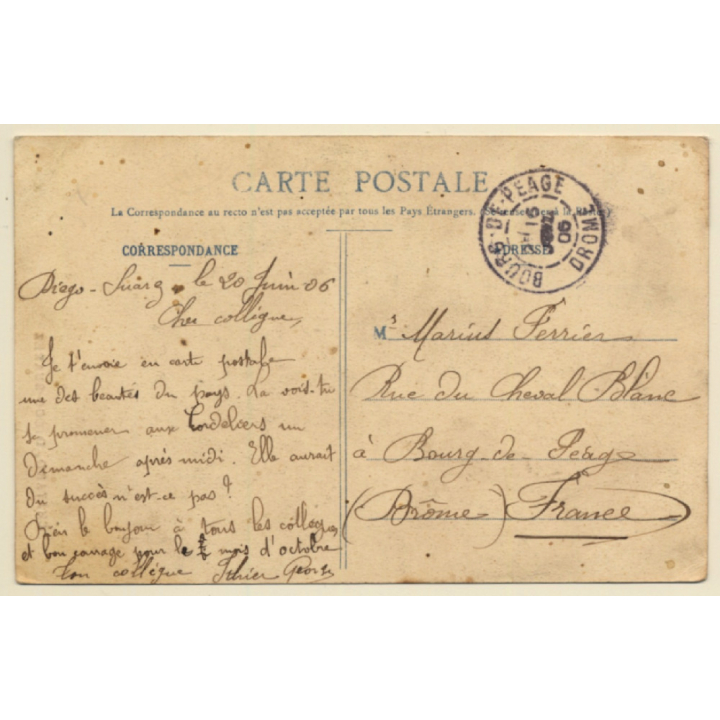 CARTE POSTALE
La Correspondance au recto n'est pas acceptée par tous les Pays Étrangers.
BOURG-DE-PEAGE
DROME
06
CORRESPONDANCE
ADRESSE
Diego-Suarez le 20 Juin 06
Cher collègue,
Je t'envoie en carte postale
une des beautés du pays. La vois-tu
se promener aux Cordeliers un
Dimanche après midi. Elle aurait
du succès n'est-ce pas?
Bien le bonjour à tous les collègues
et bon courage pour le mois d'octobre
Ton collègue Georges
Mr Marius Ferrier
Rue du Cheval Blanc
à Bourg-de-Péage
(Drôme) France